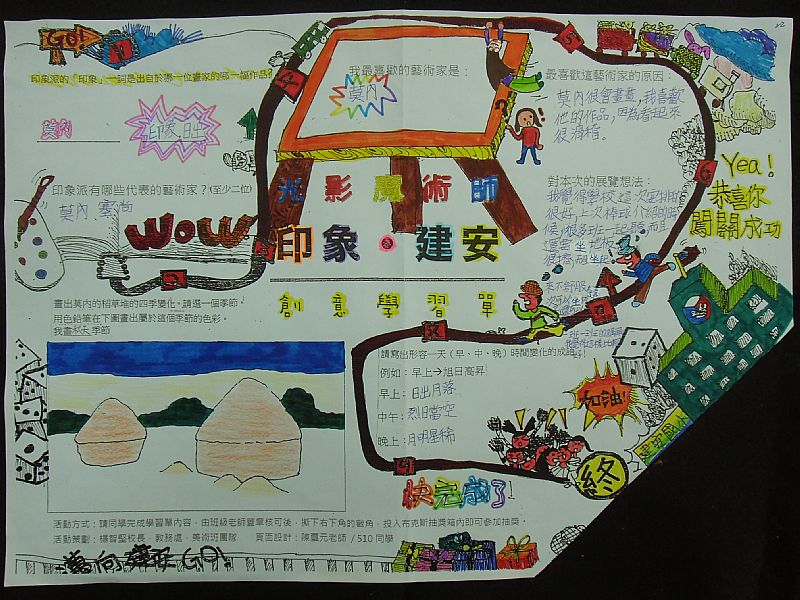 GO!
印象派的「印象」一詞是出自於哪一位畫家的哪一幅作品?
莫內
印象.日出
印象派有哪些代表的藝術家?(至少二位)
莫內、塞尚
WOW
我最喜歡的藝術家是:
莫內
最喜歡這藝術家的原因:
莫內很會畫畫,我喜歡
他的作品,因為看起來
很滑稽。
光影魔術師
印象·建安
創意學習單
對本次的展覽想法:
我覺得學校這次
很好,上次棒球介紹的時
候,很多班一起
Yea!
恭喜你
闖關成功
畫出莫內的稻草堆的四季變化。請選一個季節,
用色鉛筆在下圖畫出屬於這個季節的色彩。
我畫秋天季節
請寫出形容一天(早、中、晚)時間變化的成語
例如:早上→旭日高昇
早上:日出月落
中午:烈日當空
晚上:月明星稀
加油!
終
快完成了!
活動方式:請同學完成學習單內容,由班級老師蓋章核可後,撕下右下角的截角,投入布克斯抽獎箱內即可參加抽獎。
活動策劃:楊智堅校長、教務處、美術班團隊 頁面設計:陳靈元老師/510同學
邁向建安GO!